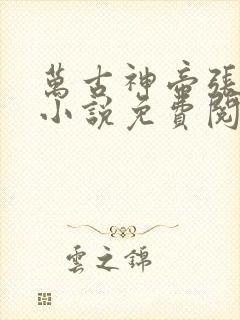 萬古神帝張
小說免費閱
雲之錦